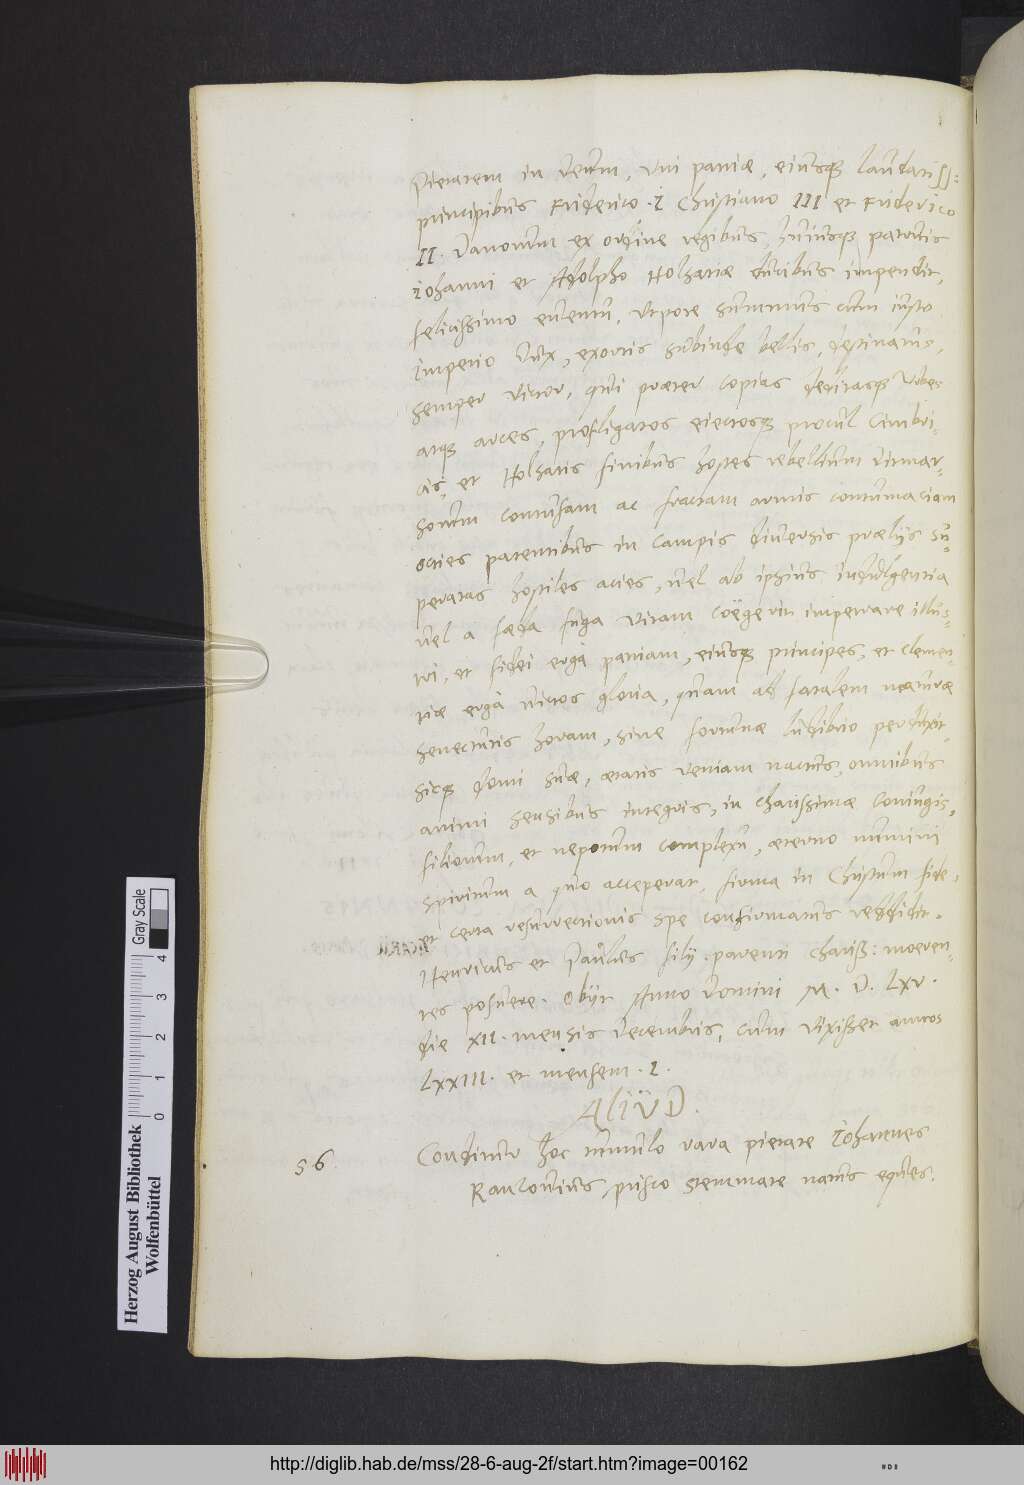 Pietatem in Deum, Vni patriæ, eiusq3 laudatiss:
principibus Friderico .I. Christiano III et Friderico
II. Danorum ex ordine regibus, huiusq3 patruis
Iohanni et Adolpho Holsatiæ ducibus impendit,
felicissimo euentu, Vtpote summus cum iusto
imperio Dux, exortis subinde bellis, destinatus,
semper Victor, qui præter copias deditasq3 Vrbes
atq3 arces, profligatos eiectosq3 procul Cimbri-
cis, et Holsatis finibus hostes rebellium Ditmar-
sorum contusam ac fractam armis contumaciam
octies patentibus in campis diuersis prælijs su-
peratas hostiles acies, vel ab ipsius indulgentia
vel a fæda fuga Vitam coëgerit impetrare illus-
tri, et fidei ergà patriam, eiusq3 principes, et clemen-
tiæ ergà victos gloria, quam ad fatalem maturæ
senectutis horam, sine fortunæ ludibrio perduxit
sicq3 domi suæ, ætatis Veniam nactus, omnibus
animi sensibus integris, in charissimæ Coniugis,
filiorum, et nepotum complexu, æterno numini
spiritum a quo acceperat, firma in Christum fide,
et certa resurrectionis spe confirmatus reddidit.
Henricus et Paulus filij parenti chariss: moeren-
tes posuere. Obijt Anno Domini M. D. LXV.
die XII. mensis Decembris, cum Vixisset annos
LXXIII. et mensem .I.
ALIVD.
56. Conditur hoc tumulo rara pietate Iohannes
Ranzouius, prisco stemmate natus eques.
Herzog August Bibliothek
Wolfenbüttel
0 1 2 3 4
Gray Scale
http://diglib.hab.de/mss/28-6-aug-2f/start.htm?image=00162